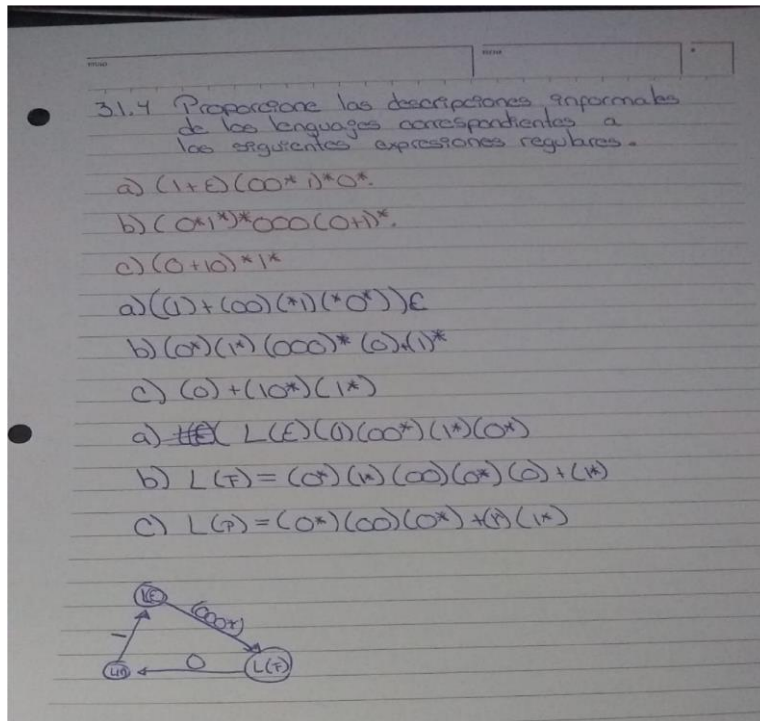 FECHA
3.1.4 Proporcione las descripciones informales
de los lenguages correspondientes a
los siguientes expresiones regulares.
a) (1+ε)(00*1)*0*.
b) (0*1*)*000(0+1)*.
c) (0+10)*1*
a) ((1)+(00)(*1)(*0*))ε
b) (0*)(1*)(000)*(0)+(1)*
c) (0)+(10*)(1*)
a) L(E)(1)(00*)(1*)(0*)
b) L(F)=(0*)(1*)(00)(0*)(0)+(1*)
c) L(P)=(0*)(00)(0*)+(1*)(1*)
L(E) (000*)
1
0 L(F)